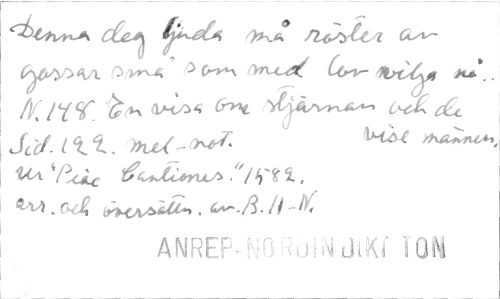 Denna dag ljuda må röster av
gossar små som med lov vilja nå..
N. 148. En visa om stjärnan och de
Sid. 122. mel-not. vise männen,
ur "Piæ Cantiones." 1582.
arr. och översättn. av. B. A-N.
ANREP-NORDIN DIKT TON